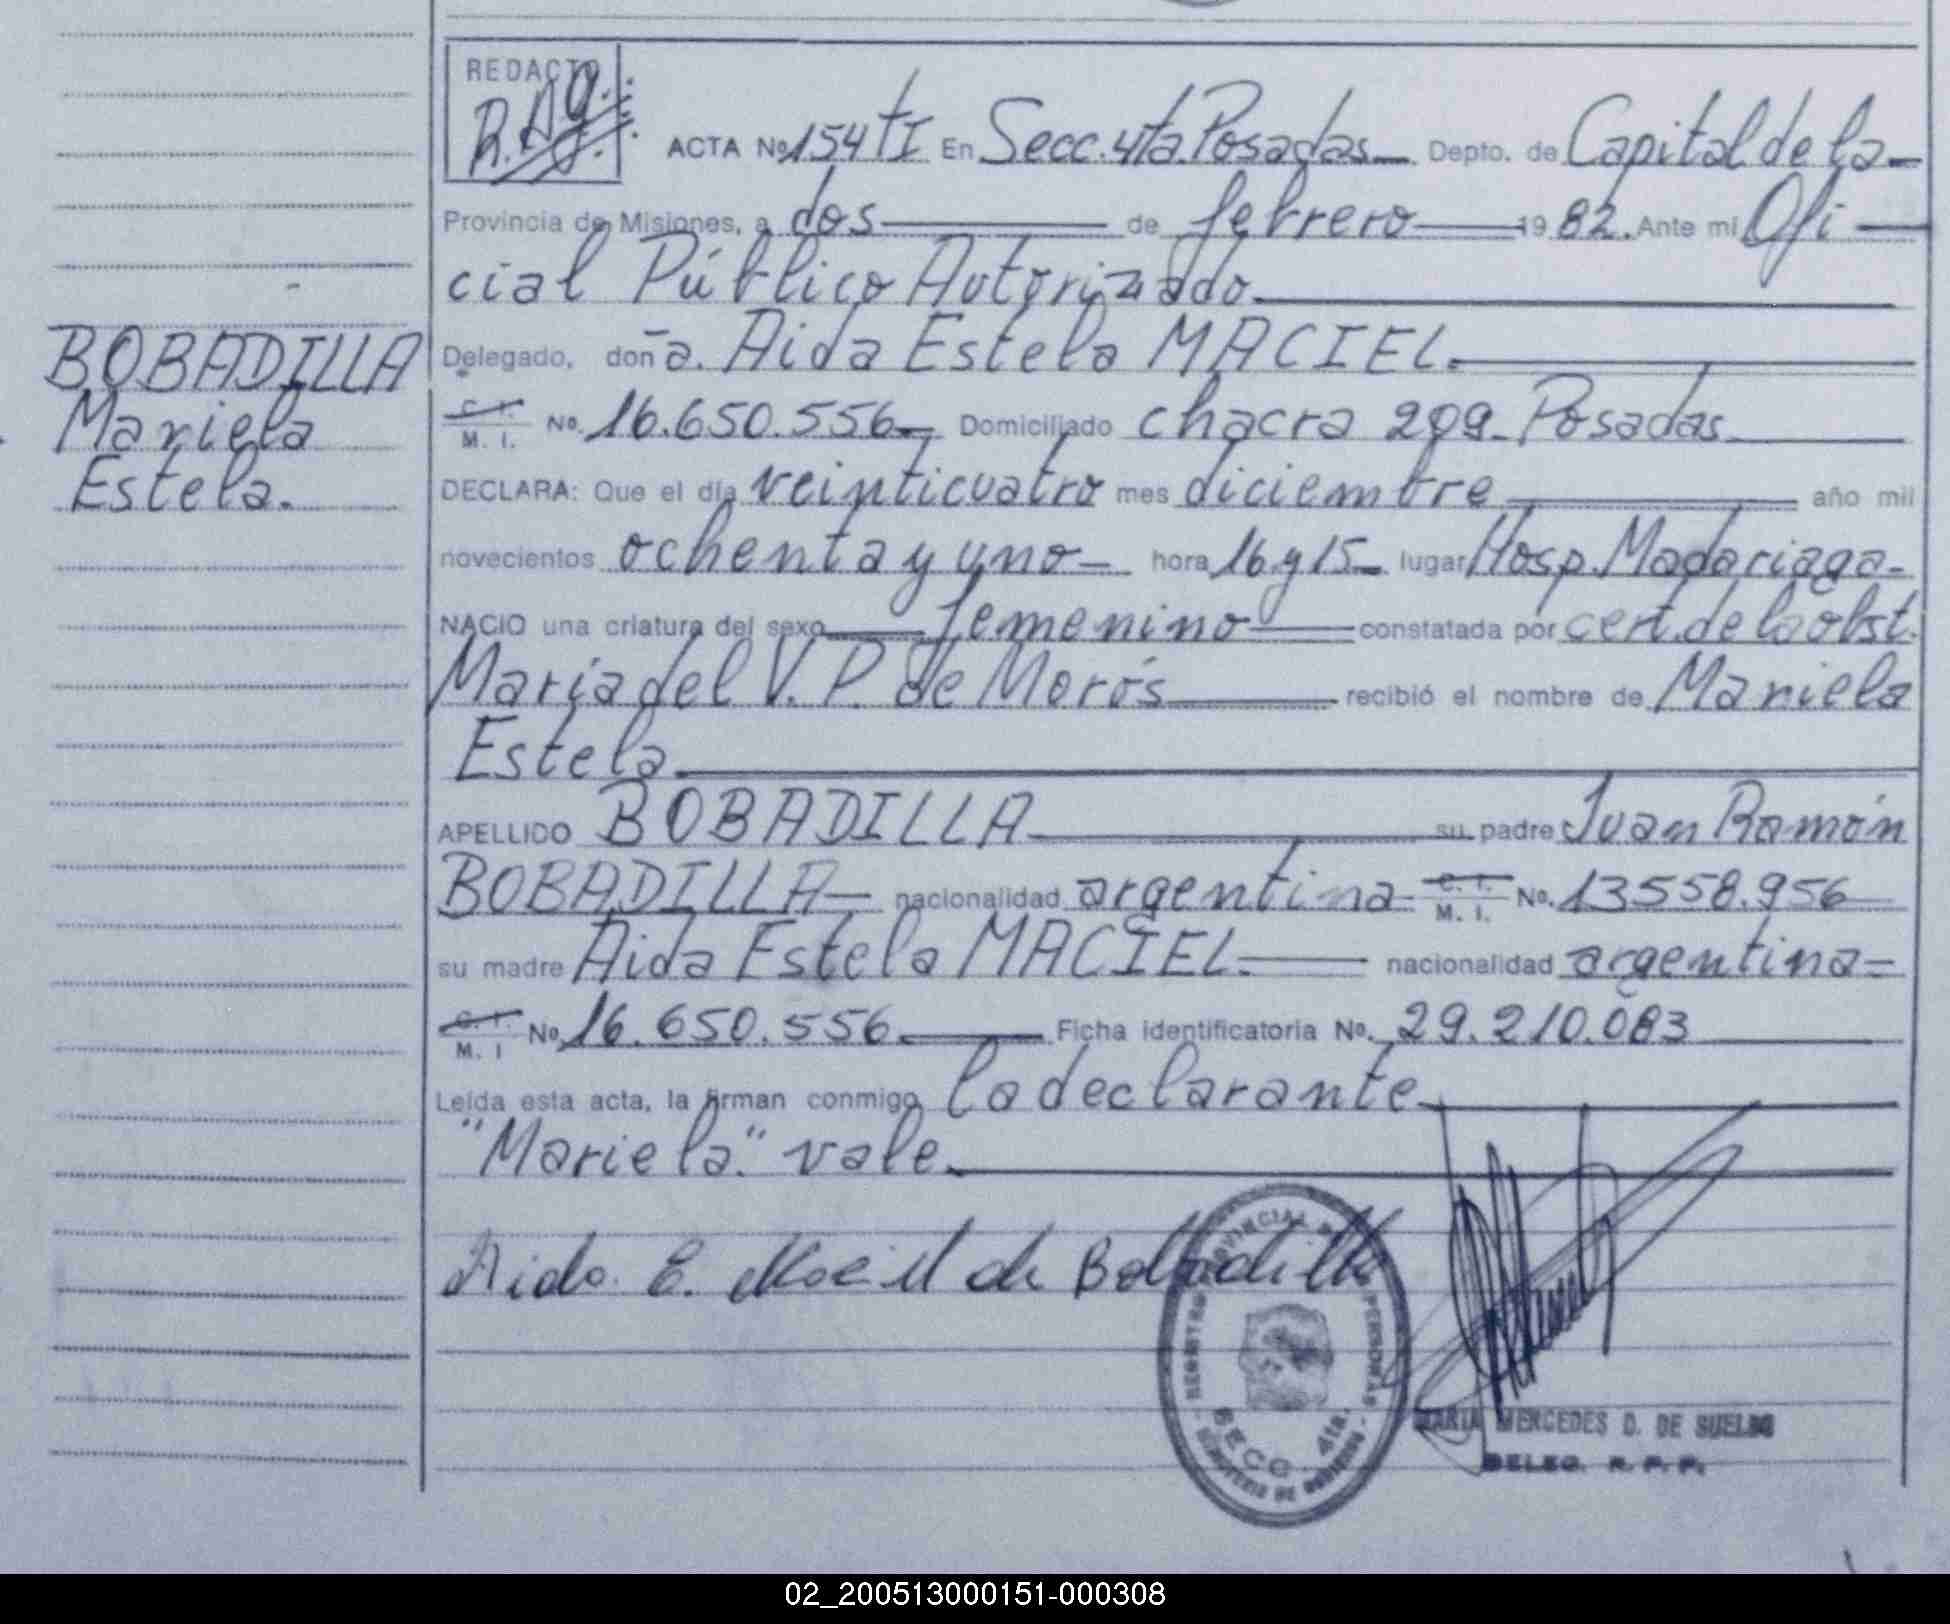 REDACTO
R.A.g.
ACTA No. 154 tI En Secc. 4ta. Posadas Depto. de Capital de la
Provincia de Misiones, a dos de febrero 1982. Ante mi Ofi
cial Público Autorizado
Delegado, doña. Aida Estela MACIEL.
C. I. M. I. No. 16.650.556 Domiciliado chacra 209 - Posadas
DECLARA: Que el día veinticuatro mes diciembre año mil
novecientos ochenta y uno hora 16 y 15 lugar Hosp. Madariaga
NACIO una criatura del sexo femenino constatada por cert. de la obst.
María del V. P. de Morós recibió el nombre de Mariela
Estela
APELLIDO BOBADILLA su padre Juan Ramón
BOBADILLA nacionalidad argentina C. I. M. I. No. 13558.956
su madre Aida Estela MACIEL. nacionalidad argentina
C. I. M. I No. 16.650.556 Ficha identificatoria No. 29.210.083
Leída esta acta, la firman conmigo la declarante
"Mariela." vale.
Aida E. Maciel de Bobadilla
BOBADILLA
Mariela
Estela.
SECC. 4ta.
MARIA MERCEDES D. DE SUELDO
DELEG. R. P. P.
02_200513000151-000308